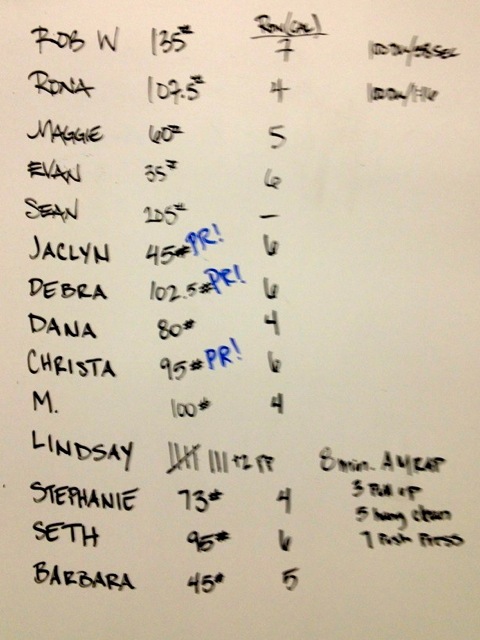 Row (CAL)
ROB W 135# 7
RONA 107.5# 4
MAGGIE 60# 5
EVAN 35# 6
SEAN 205# —
JACLYN 45# PR! 6
DEBRA 102.5# PR! 6
DANA 80# 4
CHRISTA 95# PR! 6
M. 100# 4
LINDSAY +2 PP 8 min. AMRAP
3 Pull up
STEPHANIE 73# 4
5 hang clean
SETH 95# 6
7 Push Press
BARBARA 45# 5